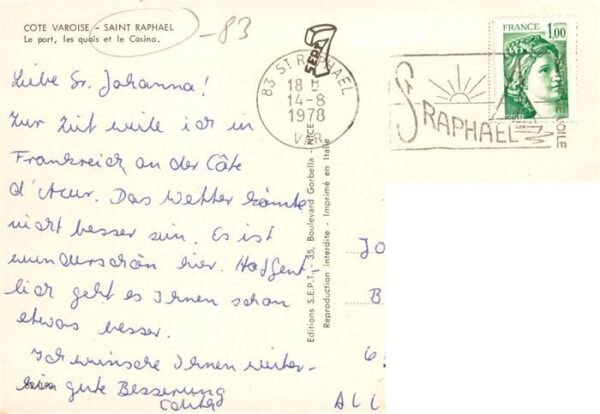 COTE VAROISE - SAINT RAPHAEL
Le port, les quais et le Casino.
-83
Liebe Sr. Johanna!
Zur Zeit weile ich in
Frankreich an der Côte
d'Azur. Das Wetter könnte
nicht besser sein. Es ist
wunderschön hier. Hoffent-
lich geht es Ihnen schon
etwas besser.
Ich wünsche Ihnen weiter-
hin gute Besserung
Editions S.E.P.T. - 35, Boulevard Gorbella - NICE
Reproduction interdite - Imprimé en Italie
SEPT
83 ST RAPHAEL
18 H
14-8
1978
VAR
ST RAPHAEL
FRANCE
1,00
JO
B
6
ALL